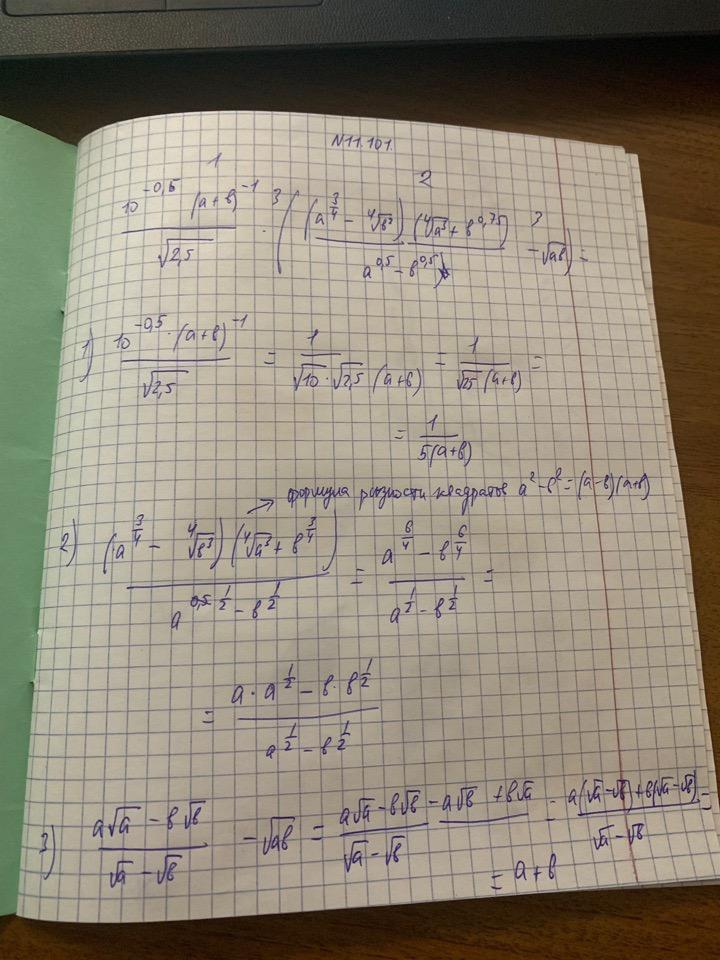 N11.101.
1 2
\frac{10^{-0,5} (a+b)^{-1}}{\sqrt{2,5}} \cdot^{3} \left( \frac{(a^{\frac{3}{4}} - \sqrt[4]{b^3}) \cdot (\sqrt[4]{a^3} + b^{0,75})}{a^{0,5} - b^{0,5}} -^{3} \sqrt{ab} \right) =
1) \frac{10^{-0,5} \cdot (a+b)^{-1}}{\sqrt{2,5}} = \frac{1}{\sqrt{10} \cdot \sqrt{2,5} (a+b)} = \frac{1}{\sqrt{25} (a+b)} =
= \frac{1}{5(a+b)}
→ формула разности квадратов a^2 - b^2 = (a-b)(a+b)
2) \frac{(a^{\frac{3}{4}} - \sqrt[4]{b^3})(\sqrt[4]{a^3} + b^{\frac{3}{4}})}{a^{\frac{1}{2}} - b^{\frac{1}{2}}} = \frac{a^{\frac{6}{4}} - b^{\frac{6}{4}}}{a^{\frac{1}{2}} - b^{\frac{1}{2}}} =
= \frac{a \cdot a^{\frac{1}{2}} - b \cdot b^{\frac{1}{2}}}{a^{\frac{1}{2}} - b^{\frac{1}{2}}}
3) \frac{a\sqrt{a} - b\sqrt{b}}{\sqrt{a} - \sqrt{b}} - \sqrt{ab} = \frac{a\sqrt{a} - b\sqrt{b} - a\sqrt{b} + b\sqrt{a}}{\sqrt{a} - \sqrt{b}} = \frac{a(\sqrt{a} - \sqrt{b}) + b(\sqrt{a} - \sqrt{b})}{\sqrt{a} - \sqrt{b}} =
= a + b